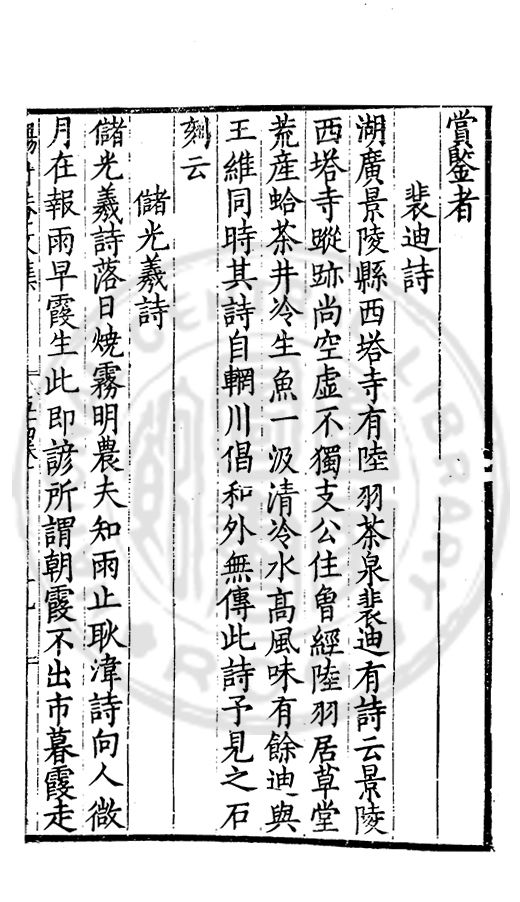 賞鑒者
裴迪詩
湖廣景陵縣西塔寺有陸羽茶泉裴迪有詩云景陵
西塔寺蹤跡尚空虛不獨支公住曾經陸羽居草堂
荒産蛤茶井冷生魚一汲清冷水高風味有餘迪與
王維同時其詩自輞川倡和外無傳此詩予見之石
刻云
儲光羲詩
儲光羲詩落日燒霧明農夫知雨止耿湋詩向人微
月在報雨早霞生此即諺所謂朝霞不出市暮霞走